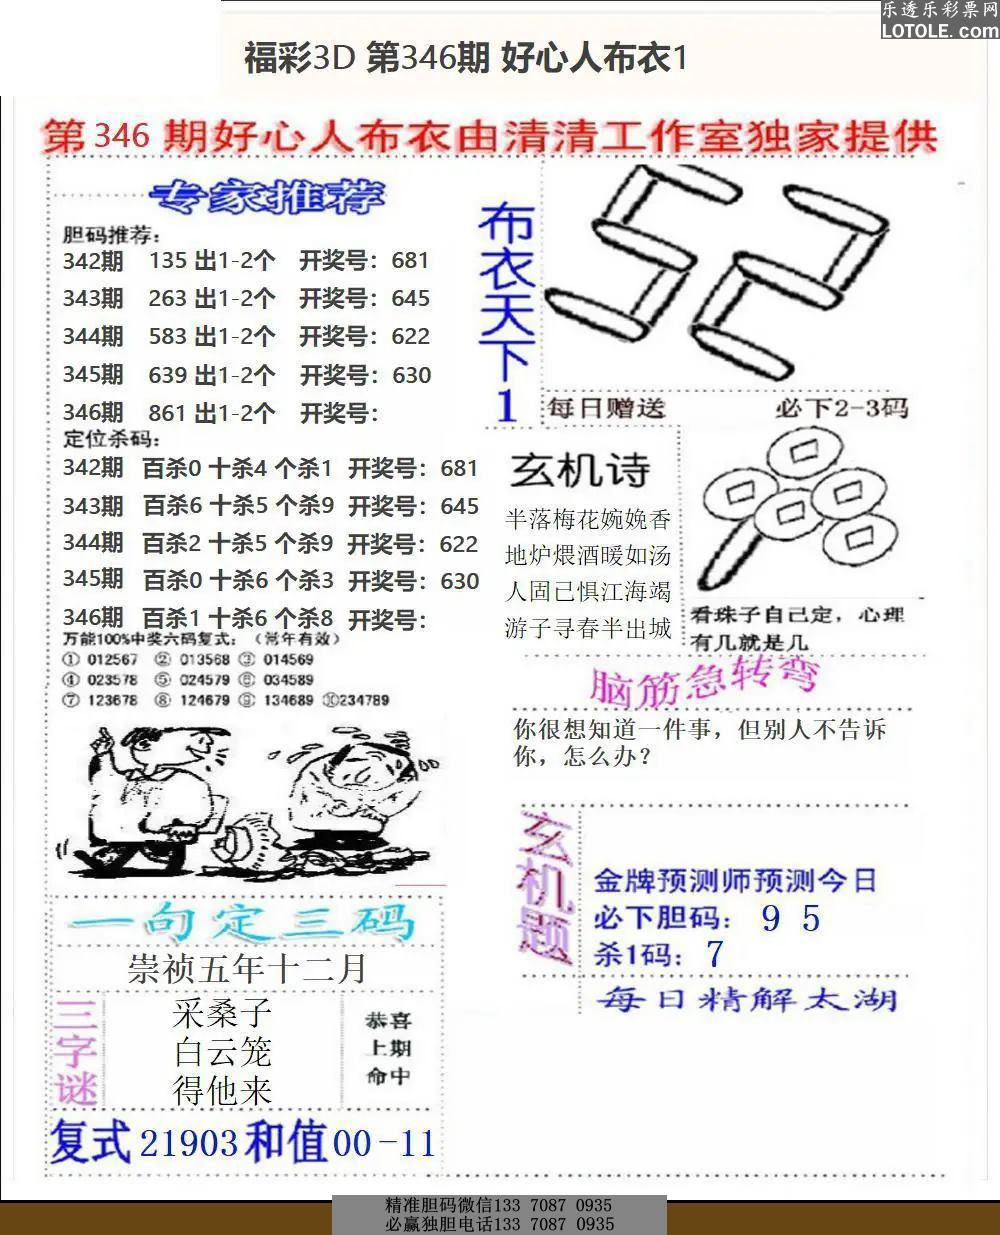 乐透乐彩票网
LOTOLE.com
福彩3D 第346期 好心人布衣1
第 346 期好心人布衣由清清工作室独家提供
专家推荐
胆码推荐：
342期 135 出1-2个 开奖号：681
343期 263 出1-2个 开奖号：645
344期 583 出1-2个 开奖号：622
345期 639 出1-2个 开奖号：630
346期 861 出1-2个 开奖号：
定位杀码：
342期 百杀0 十杀4 个杀1 开奖号：681
343期 百杀6 十杀5 个杀9 开奖号：645
344期 百杀2 十杀5 个杀9 开奖号：622
345期 百杀0 十杀6 个杀3 开奖号：630
346期 百杀1 十杀6 个杀8 开奖号：
万能100%中奖六码复式：（常年有效）
① 012567 ② 013568 ③ 014569
④ 023578 ⑤ 024579 ⑥ 034589
⑦ 123678 ⑧ 124679 ⑨ 134689 ⑩234789
一句定三码
崇祯五年十二月
三字谜
采桑子
白云笼
得他来
恭喜
上期
命中
复式 21903 和值 00-11
布衣天下1
52
每日赠送 必下2-3码
玄机诗
半落梅花婉娩香
地炉煨酒暖如汤
人固已惧江海竭
游子寻春半出城
看珠子自己定，心理
有几就是几
脑筋急转弯
你很想知道一件事，但别人不告诉
你，怎么办？
玄机题
金牌预测师预测今日
必下胆码： 9 5
杀1码： 7
每日精解太湖
精准胆码微信133 7087 0935
必赢独胆电话133 7087 0935